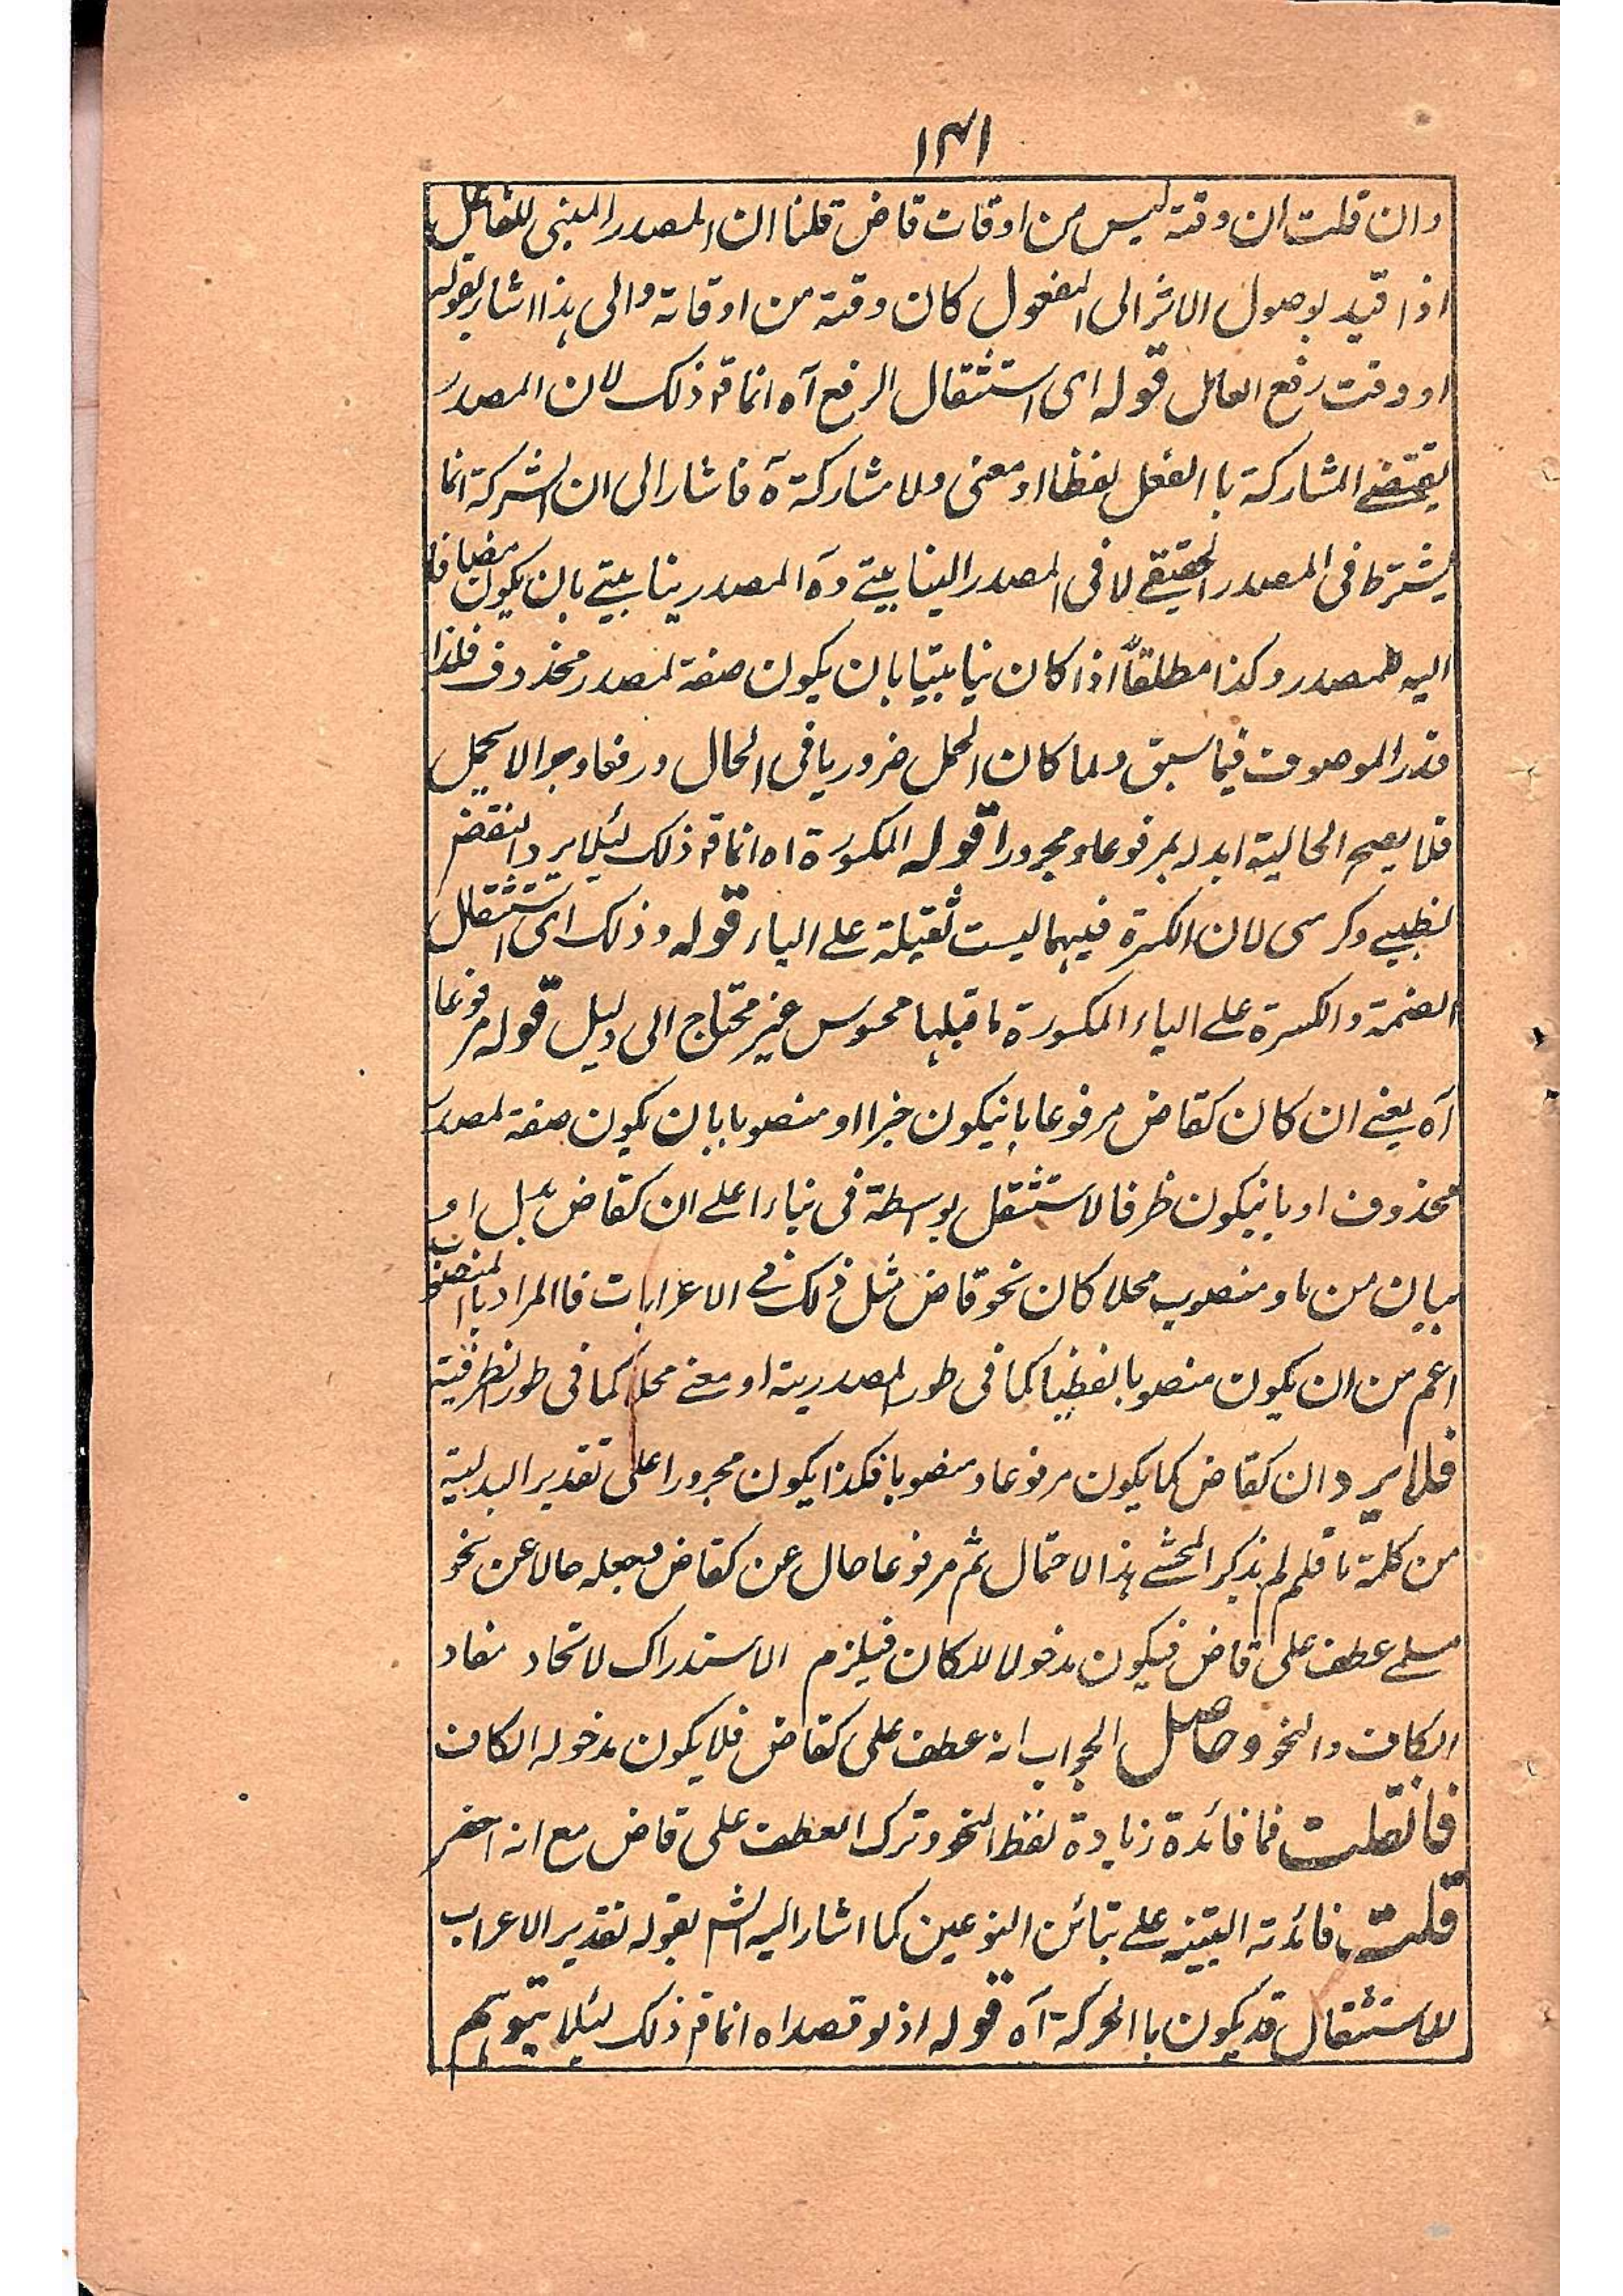 ۱۴۱
وان قلت ان وقتہ لیس من اوقات قاض قلنا ان المصدر المبنی للفاعل
اذا قید بوصول الاثر الی المفعول کان وقتہ من اوقاتہ والی ہذا اشار بقولہ
او وقت رفع العامل قولہ ای استثقال الرفع آہ انما قہ ذلک لان المصدر
یقتضے المشارکۃ با الفعل لفظا او معنی ولا مشارکۃ آہ فاشار الی ان الشرکۃ انما
یشترط فی المصدر الحقیقے لا فی المصدر الینابیتے وہ المصدر ینابیتے بان یکون مضافا
الیہ للمصدر وکذا مطلقاً اذا کان نیابتیا بان یکون صفۃ لمصدر محذوف فلذا
قدر الموصوف فیما سبق ولما کان الحمل ضروریا فی الحال ورفعا وجرا لا یحمل
فلا یصح الحالیۃ ابدلہ بمرفوعا ومجرورا قولہ المکسورۃ اہ انما قہ ذلک لیئلا یرد النقض
بظبیے وکرسی لان الکسرۃ فیہما لیست ثقیلۃ علے الیاء قولہ وذلک ای استثقال
الضمۃ والکسرۃ علے الیاء المکسورۃ ما قبلہا محسوس غیر محتاج الی دلیل قولہ مرفوعا
آہ یعنے ان کان کقاض مرفوعا بانیکون خبرا او منصوبا بان یکون صفۃ لمصدر
محذوف او بانیکون ظرفا لاستثقل بواسطۃ فی بناءا علے ان کقاض بدل او
بیان من ما ومنصوب محلا کان نحو قاض مثل ذلک فے الاعرابات فاالمراد باالمنصوب
اعم من ان یکون منصوبا لفظیا کما فی طور المصدریۃ او معنے محلا کما فی طور الظرفیۃ
فلا یرد ان کقاض کما یکون مرفوعا ومنصوبا فکذا یکون مجرورا علی تقدیر البدلیۃ
من کلمۃ ما فلم لم یذکر المحشے ہذا الاحتمال ثم مرفوعا حال عن کقاض فیجعلہ حالا عن نحو
مسلمے عطف علی قاض فیکون مدخولا للکاف فیلزم الاستدراک لاتحاد مفاد
الکاف والنحو وحاصل الجواب انہ عطف علی کقاض فلا یکون مدخولہ الکاف
فانقلت فما فائدۃ زیادۃ لفظ النحو وترک العطف علی قاض مع انہ اخصر
قلت ما فائدتہ التبیہ علے تبائن النوعین کما اشار الیہ الشہ بقولہ تقدیر الاعراب
للاستثقال قد یکون باالحرکۃ آہ قولہ اذ لو قصد اہ انما قہ ذلک لیئلا یتوہم